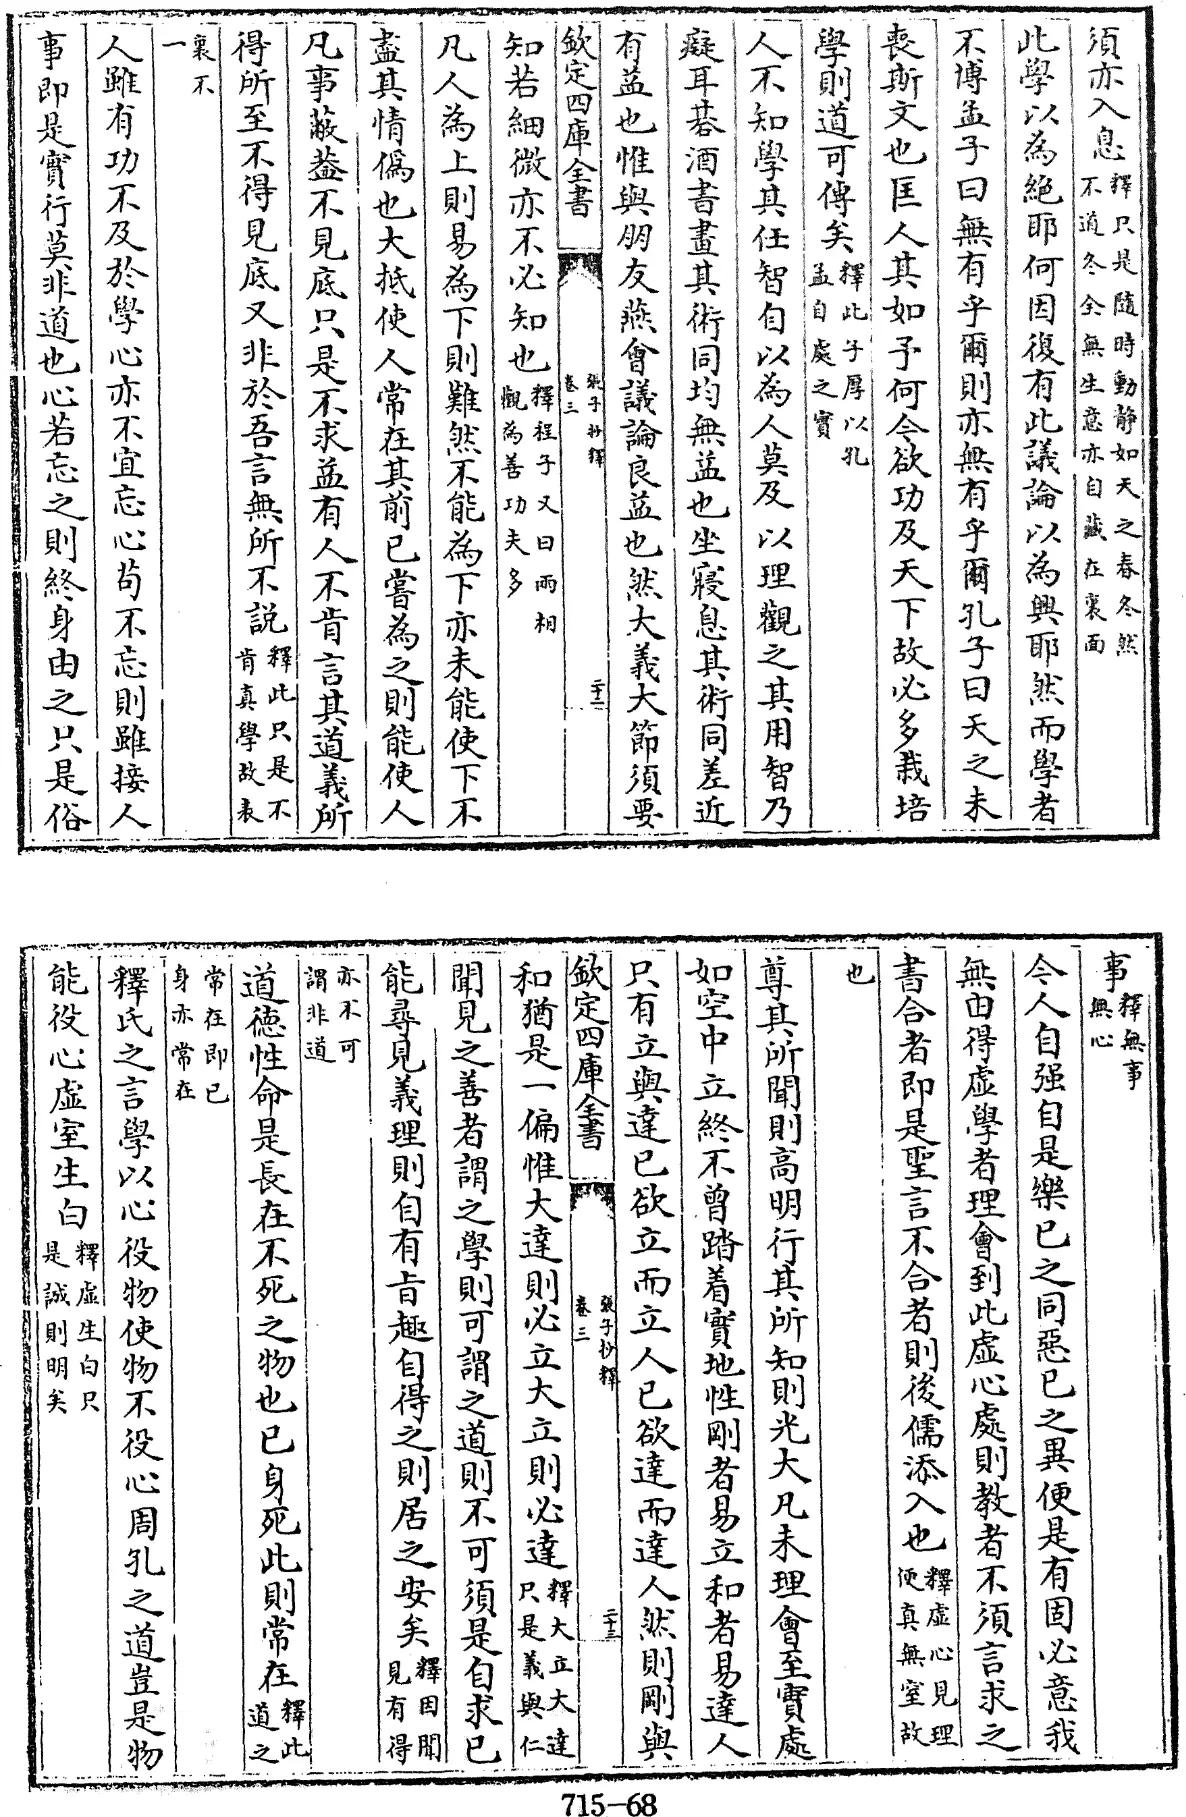 須亦入息釋只是隨時動静如天之春冬然不道冬全無生意亦自藏在裏面
此學以為絶耶何因復有此議論以為興耶然而學者
不博孟子曰無有乎爾則亦無有乎爾孔子曰天之未
喪斯文也匡人其如予何今欲功及天下故必多栽培
學則道可傳矣釋此子厚以孔孟自處之實
人不知學其任智自以為人莫及以理觀之其用智乃
癡耳棊酒書畫其術同均無益也坐寢息其術同差近
有益也惟與朋友燕會議論良益也然大義大節須要
欽定四庫全書 張子抄釋 卷三 二十二
知若細微亦不必知也釋程子又曰兩相觀為善功夫多
凡人為上則易為下則難然不能為下亦未能使下不
盡其情偽也大抵使人常在其前已嘗為之則能使人
凡事蔽葢不見底只是不求益有人不肯言其道義所
得所至不得見底又非於吾言無所不説釋此只是不肯真學故表
裏不一
人雖有功不及於學心亦不宜忘心苟不忘則雖接人
事即是實行莫非道也心若忘之則終身由之只是俗
事釋無事無心
今人自强自是樂已之同惡已之異便是有固必意我
無由得虚學者理會到此虚心處則教者不須言求之
書合者即是聖言不合者則後儒添入也釋虚心見理便真無室故
也
尊其所聞則高明行其所知則光大凡未理會至實處
如空中立終不曾踏着實地性剛者易立和者易達人
只有立與達已欲立而立人已欲達而達人然則剛與
欽定四庫全書 張子抄釋 卷三 二十三
和猶是一偏惟大達則必立大立則必達釋大立大達只是義與仁
聞見之善者謂之學則可謂之道則不可須是自求已
能尋見義理則自有旨趣自得之則居之安矣釋因聞見有得
亦不可謂非道
道德性命是長在不死之物也已身死此則常在釋此道之
常在即已身亦常在
釋氏之言學以心役物使物不役心周孔之道豈是物
能役心虚室生白釋虚生白只是誠則明矣
715-68